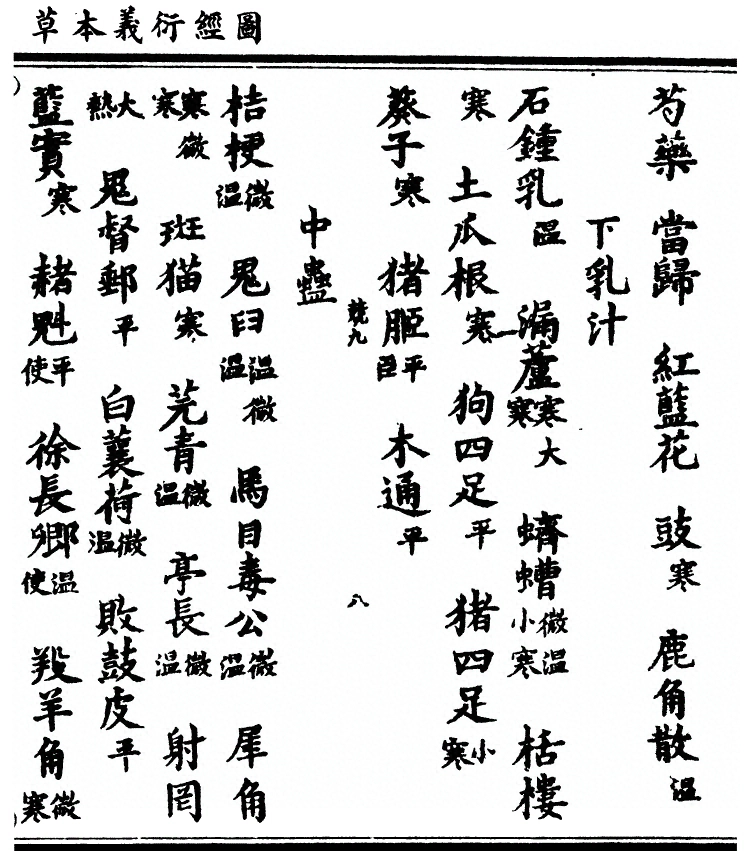 圖經衍義本草
芍藥 當歸 紅藍花 豉寒 鹿角散溫
下乳汁
石鍾乳溫 漏蘆寒大寒 蠐螬微溫小寒 栝樓
寒 土瓜根寒 狗四足平 猪四足小寒
葵子寒 猪䏰平臣 木通平
競九 八
中蠱
桔梗微溫 鬼臼溫微溫 馬目毒公微溫 犀角
寒微寒 斑猫寒 芫青微溫 亭長微溫 射罔
大熱 鬼督郵平 白蘘荷微溫 敗鼓皮平
藍實寒 赭魁平使 徐長卿溫使 羖羊角微寒